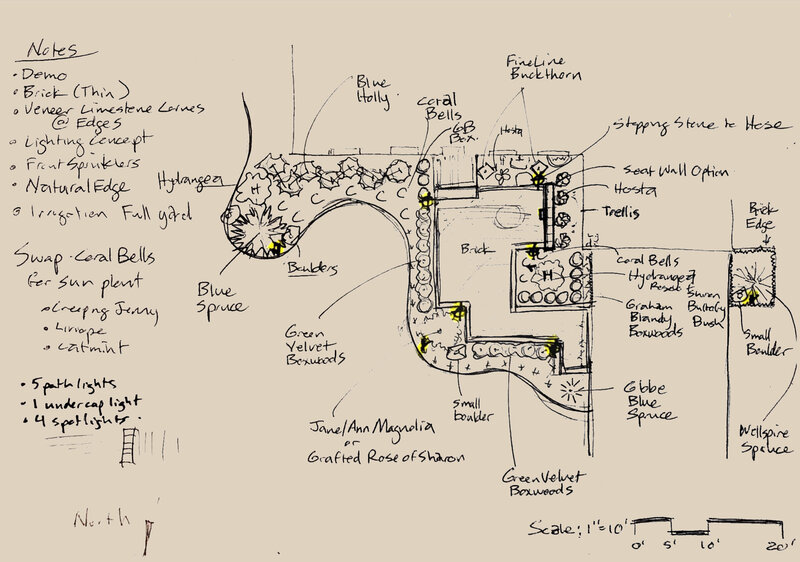 Notes
• Demo
• Brick (Thin)
• Veneer Limestone
@ Edges
• Lighting Concept
• Front Sprinklers
• Natural Edge
• Irrigation Full yard
Swap - Coral Bells
for sun plant
• Creeping Jenny
• Liriope
• Catmint
• 5 path lights
• 1 undercap light
• 4 spotlights
North
Blue
Holly
Coral
Bells
GB
Box.
FineLine
Buckthorn
Hosta
Stepping Stone to Hose
Seat Wall Option
Hosta
Trellis
Brick
Edge
Hydrangea
H
Blue
Spruce
Boulders
Brick
Coral Bells
Hydrangea
H
Graham
Blandy
Boxwoods
Butterfly
Bush
Small
Boulder
Green
Velvet
Boxwoods
Small
boulder
Globe
Blue
Spruce
Wellspire
Spruce
Jane/Ann Magnolia
or
Grafted Rose of Sharon
Green Velvet
Boxwoods
Scale: 1"=10'
0' 5' 10' 20'